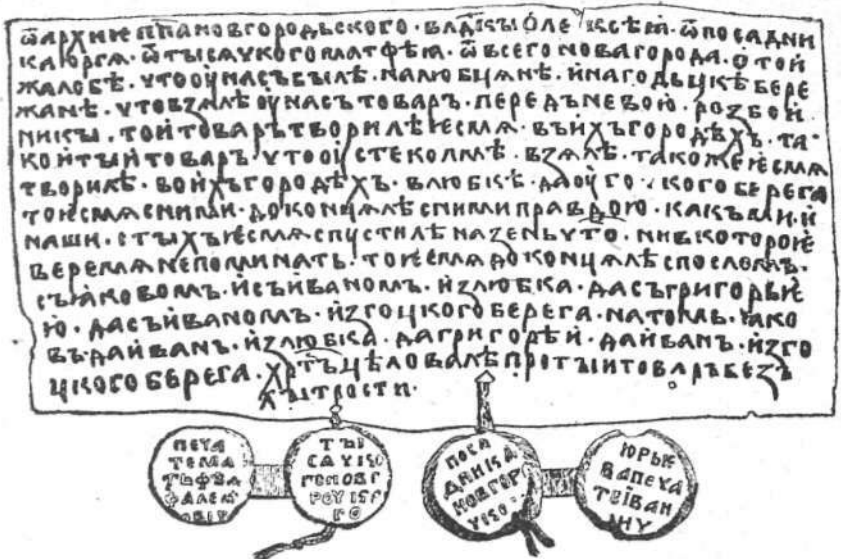 ѿархиепⷭ҇пановгородьского·влⷣкыѻлеѯѣꙗ·ѿпосадни
каюргꙗ·ѿтысѧцкогоматфѣꙗ·ѿвсегоновагорода·ѻтой
жалобѣ·чтооунасъбылѣ·налюбцѧнѣ·инагодьцкѣбере
жанѣ·чтовзѧлѣоунасътоваръ·передъневою·розбой
никы·тойтоварътворилѣѥсмѧ·въихъгородѣхъ·та
койтыйтоваръ·чтооустеколмѣ·взѧлѣ·такожеѥсмѧ
творилѣ·воихъгородѣхъ·влюбкѣ·дау кого берега
тоѥсмѧсними·доконцѧлѣснимиправдою·какъми·и
наши·стыхъѥсмѧспустилѣназеньчто·нивкотороѥ
веремѧнепоминать·тоѥсмѧдоконцѧлѣспосломъ·
съꙗковомъ·исъиваномъ·излюбка·дасъгригорьѥ
ю·дасъиваномъ·изгоцкогоберега·натомь·ꙗко
въдаиванъ·излюбка·дагригорѣй·даиванъ·изго
цкогоберега·хрⷭ҇тъцѣловалѣпротыитоваръбезъ
хытрости·
печа
тема
тьфѣꙗ
фалел
тыі
сѧчьско
гоновг
поса
дника
новгор
чьско
юрьѥ
вапеча
тьіван
ичу